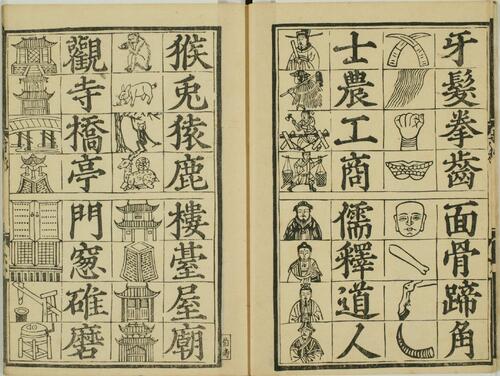 牙髮拳齒面骨蹄角
士農工商儒釋道人
猴兎猿鹿樓臺屋廟
觀寺橋亭門窻碓磨